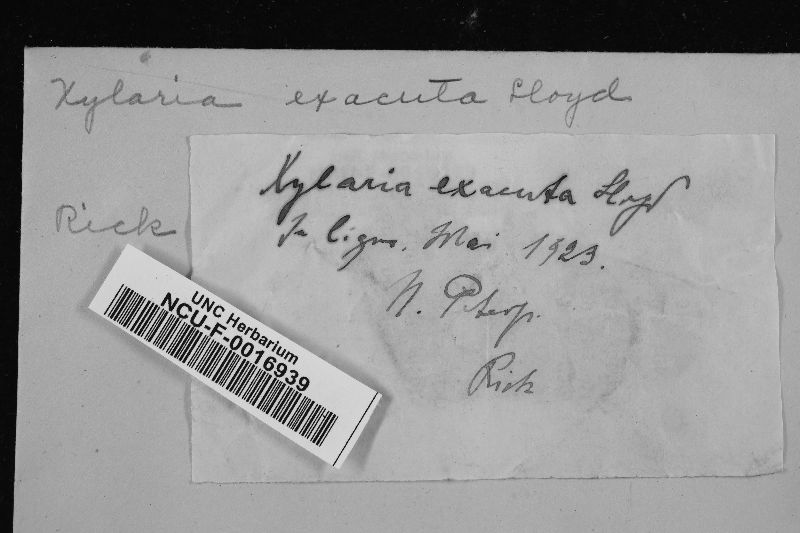 Xylaria exacuta Lloyd
Rick
Xylaria exacuta Lloyd
In ligno. Mai 1923.
N. Peterop.
Rick
UNC Herbarium
NCU-F-0016939